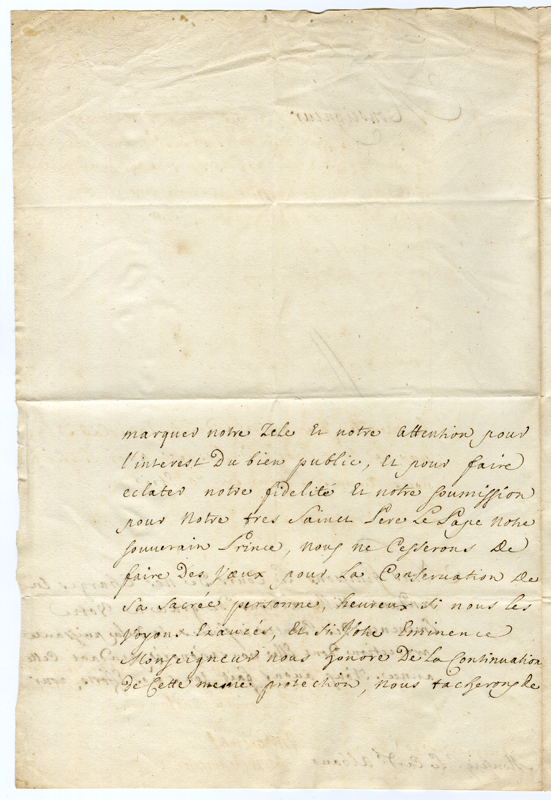 marquer notre Zele Et notre Attention pour
l'interest Du bien public, Et pour faire
eclater notre fidelité Et notre soumission
pour Notre tres Sainct Pere Le Pape notre
souverain Prince, Nous ne Cesserons De
faire Des vœux pour La Conservation De
Sa Sacrée personne, heureux si nous les
voyons Exaucés, Et si Votre Eminence
Monseigneur nous honore De La Continuation
De Cette mesme protection, Nous tacherons De